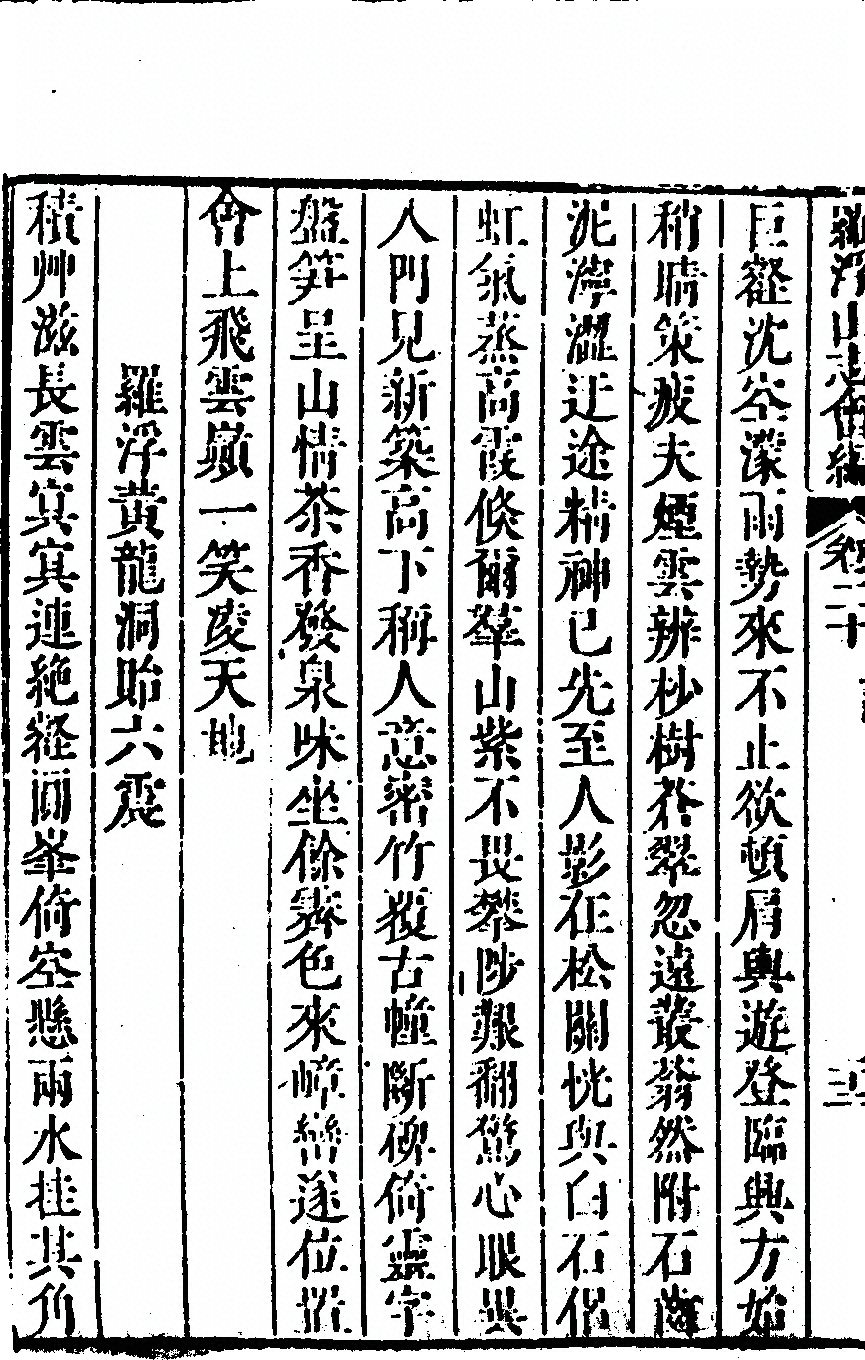 羅浮山志會編 卷二十 三
巨壑沈空濛雨勢來不止欲頓屑輿遊登臨興方始
稍晴策疲夫煙雲辨杪樹蒼翠忽遠叢蓊然附石齒
泥濘澀迂途精神已先至人影在松關恍與白石侶
虹氣蒸高霞倐爾羣山紫不畏攀陟艱翻驚心眼異
入門見新築高下稱人意密竹覆古幢斷碑倚靈字
盤笋呈山情茶香發泉味坐餘霽色來嶂巒遂位置
會上飛雲巔一笑凌天地
羅浮黃龍洞貽六震
積艸滋長雲寞寞連絶經洄峯倚空懸兩水挂其角